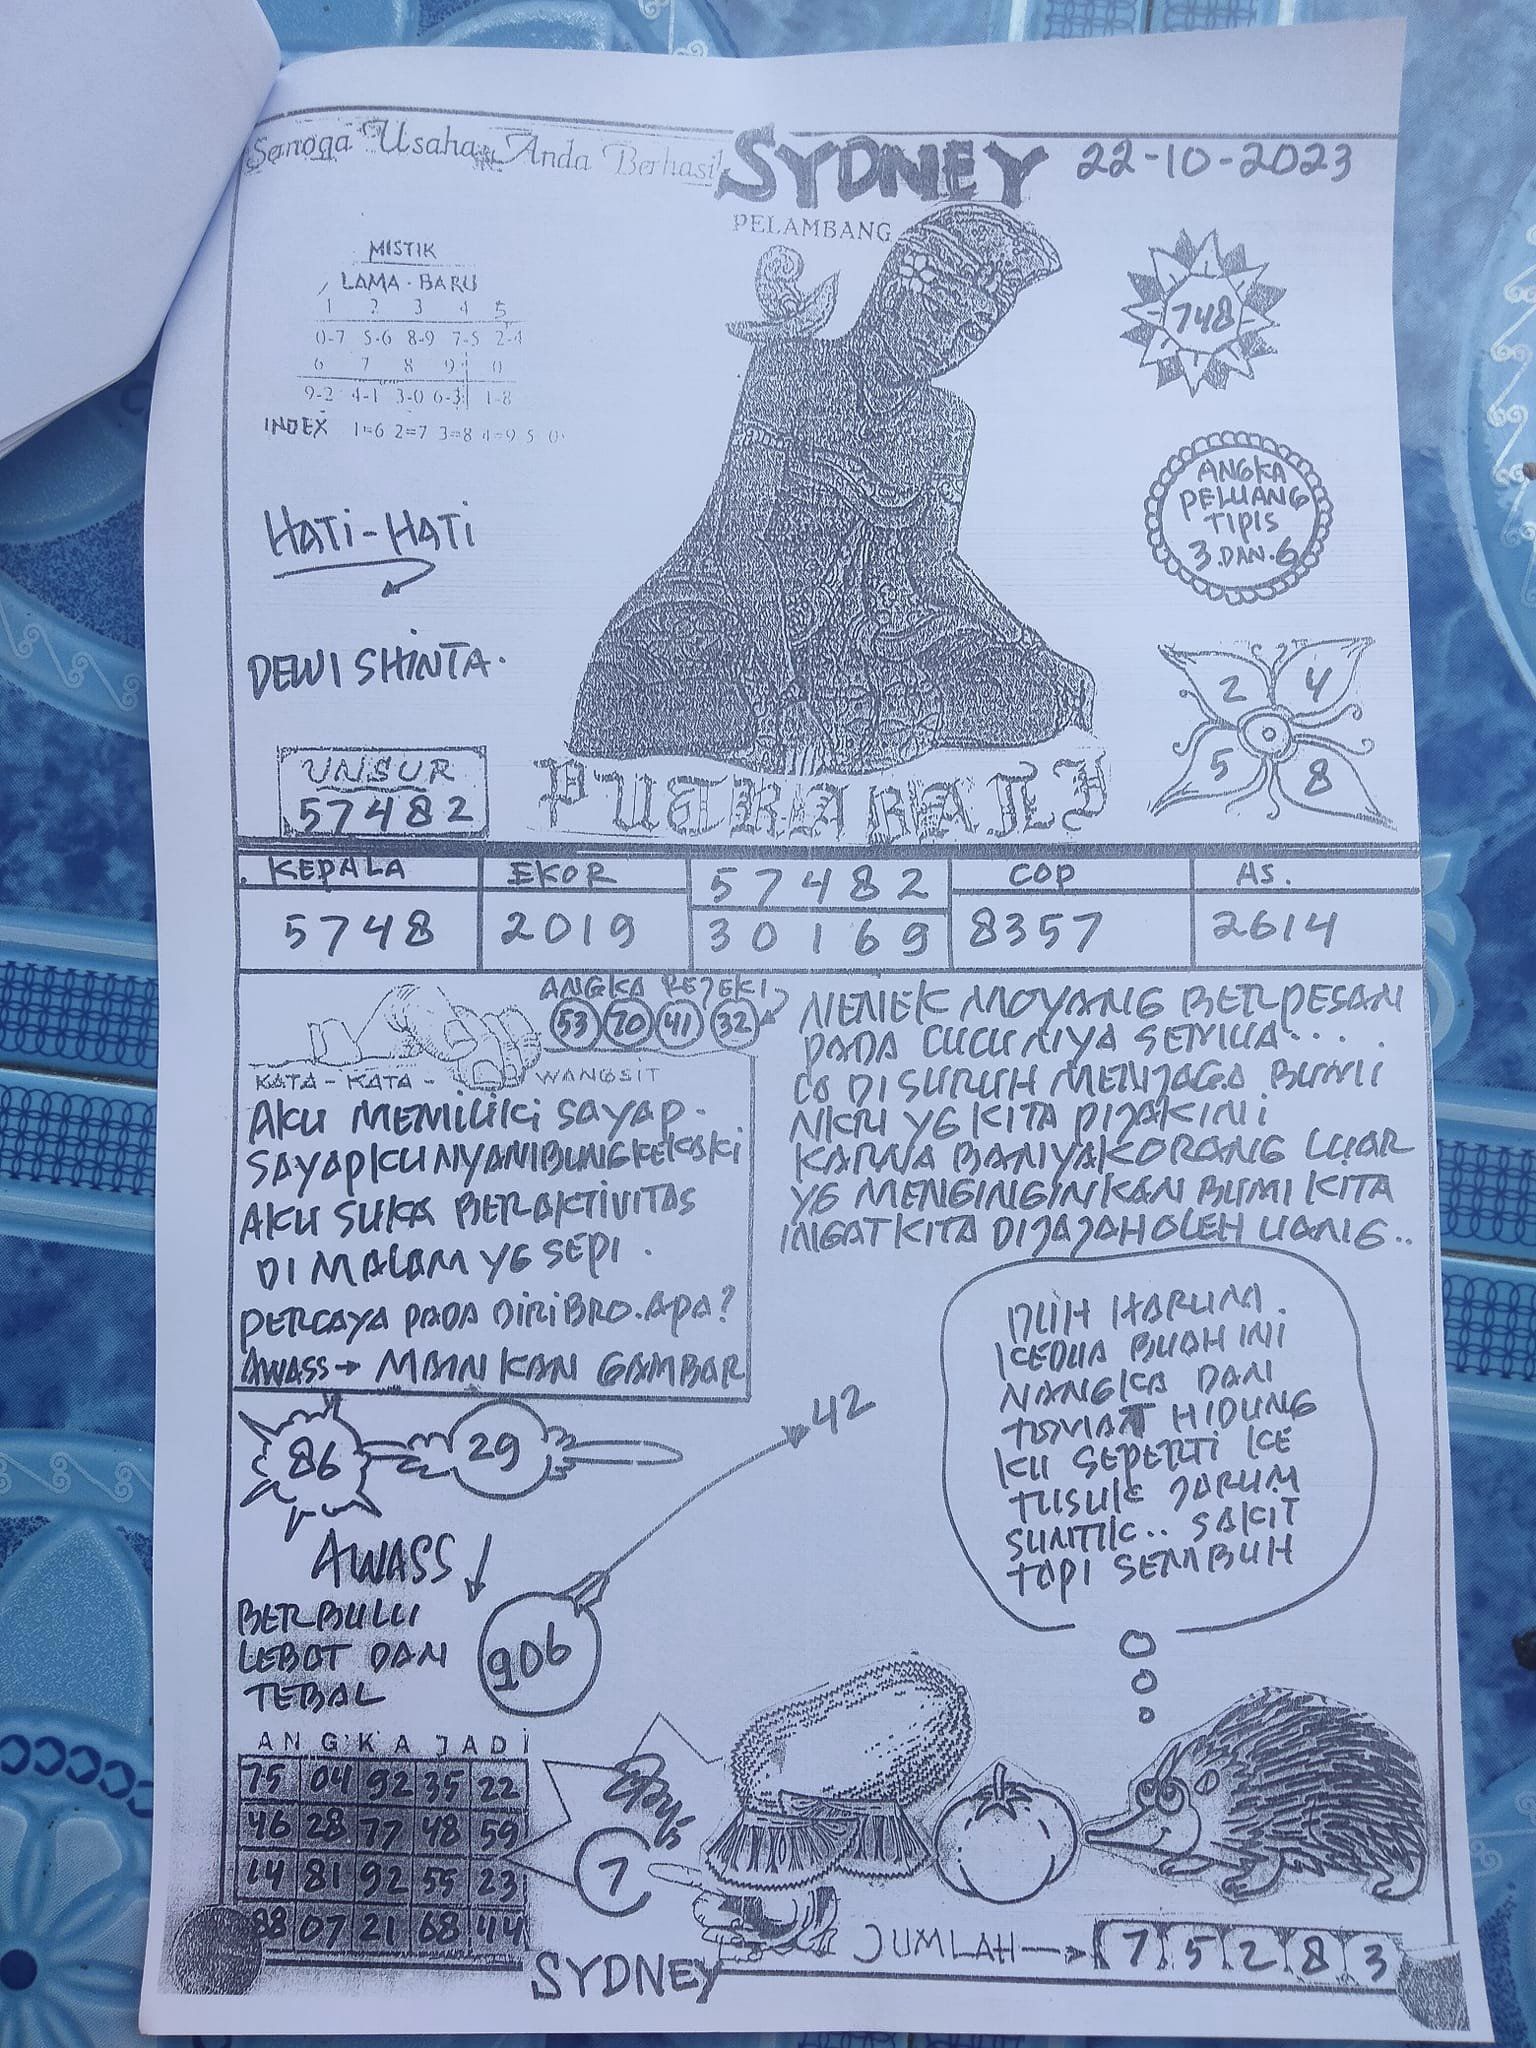 Semoga Usaha Anda Berhasil
SYDNEY 22-10-2023
PELAMBANG
MISTIK
LAMA - BARU
1 2 3 4 5
0-7 5-6 8-9 7-5 2-4
6 7 8 9 0
9-2 4-1 3-0 6-3 1-8
INDEX 1=6 2=7 3=8 4=9 5 0
748
ANGKA
PELUANG
TIPIS
3 DAN 6
HATI-HATI
DEWI SHINTA.
2 4
5 8
UNSUR
57482
PUTRA BALI
KEPALA EKOR 57482 COP AS.
5748 2019 30169 8357 2614
ANGKA REJEKI
53 70 41 32
KATA-KATA - WANGSIT
AKU MEMILIKI SAYAP.
SAYAPKU NYAMBUNG KEKAKI
AKU SUKA BERAKTIVITAS
DI MALAM YG SEPI.
PERCAYA PADA DIRI BRO. APA?
AWASS → MAINKAN GAMBAR
NENEK MOYANG BERPESAN
PADA CUCUNYA SEMUA....
DI SURUH MENJAGA BUMI
NKRI YG KITA PIJAK INI
KARNA BANYAK ORANG LUAR
YG MENGINGINKAN BUMI KITA
INGAT KITA DIJAJAH OLEH UANG..
86 29
42
AWASS
906
BERBULU
LEBAT DAN
TEBAL
HARUM.
KEDUA BUAH INI
NANGKA DAN
TOMAT HIDUNG
KU SEPERTI KE
TUSUK JARUM
SUNTIK.. SAKIT
TAPI SEMBUH
ANGKA JADI
75 04 92 35 22
46 28 77 48 59
14 81 92 55 23
88 07 21 68 44
7
SYDNEY
JUMLAH → 7 5 2 8 3